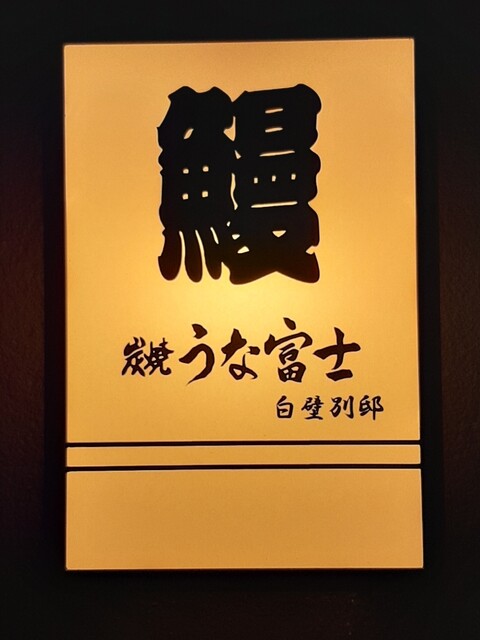 鰻
炭焼 うな富士
白壁別邸